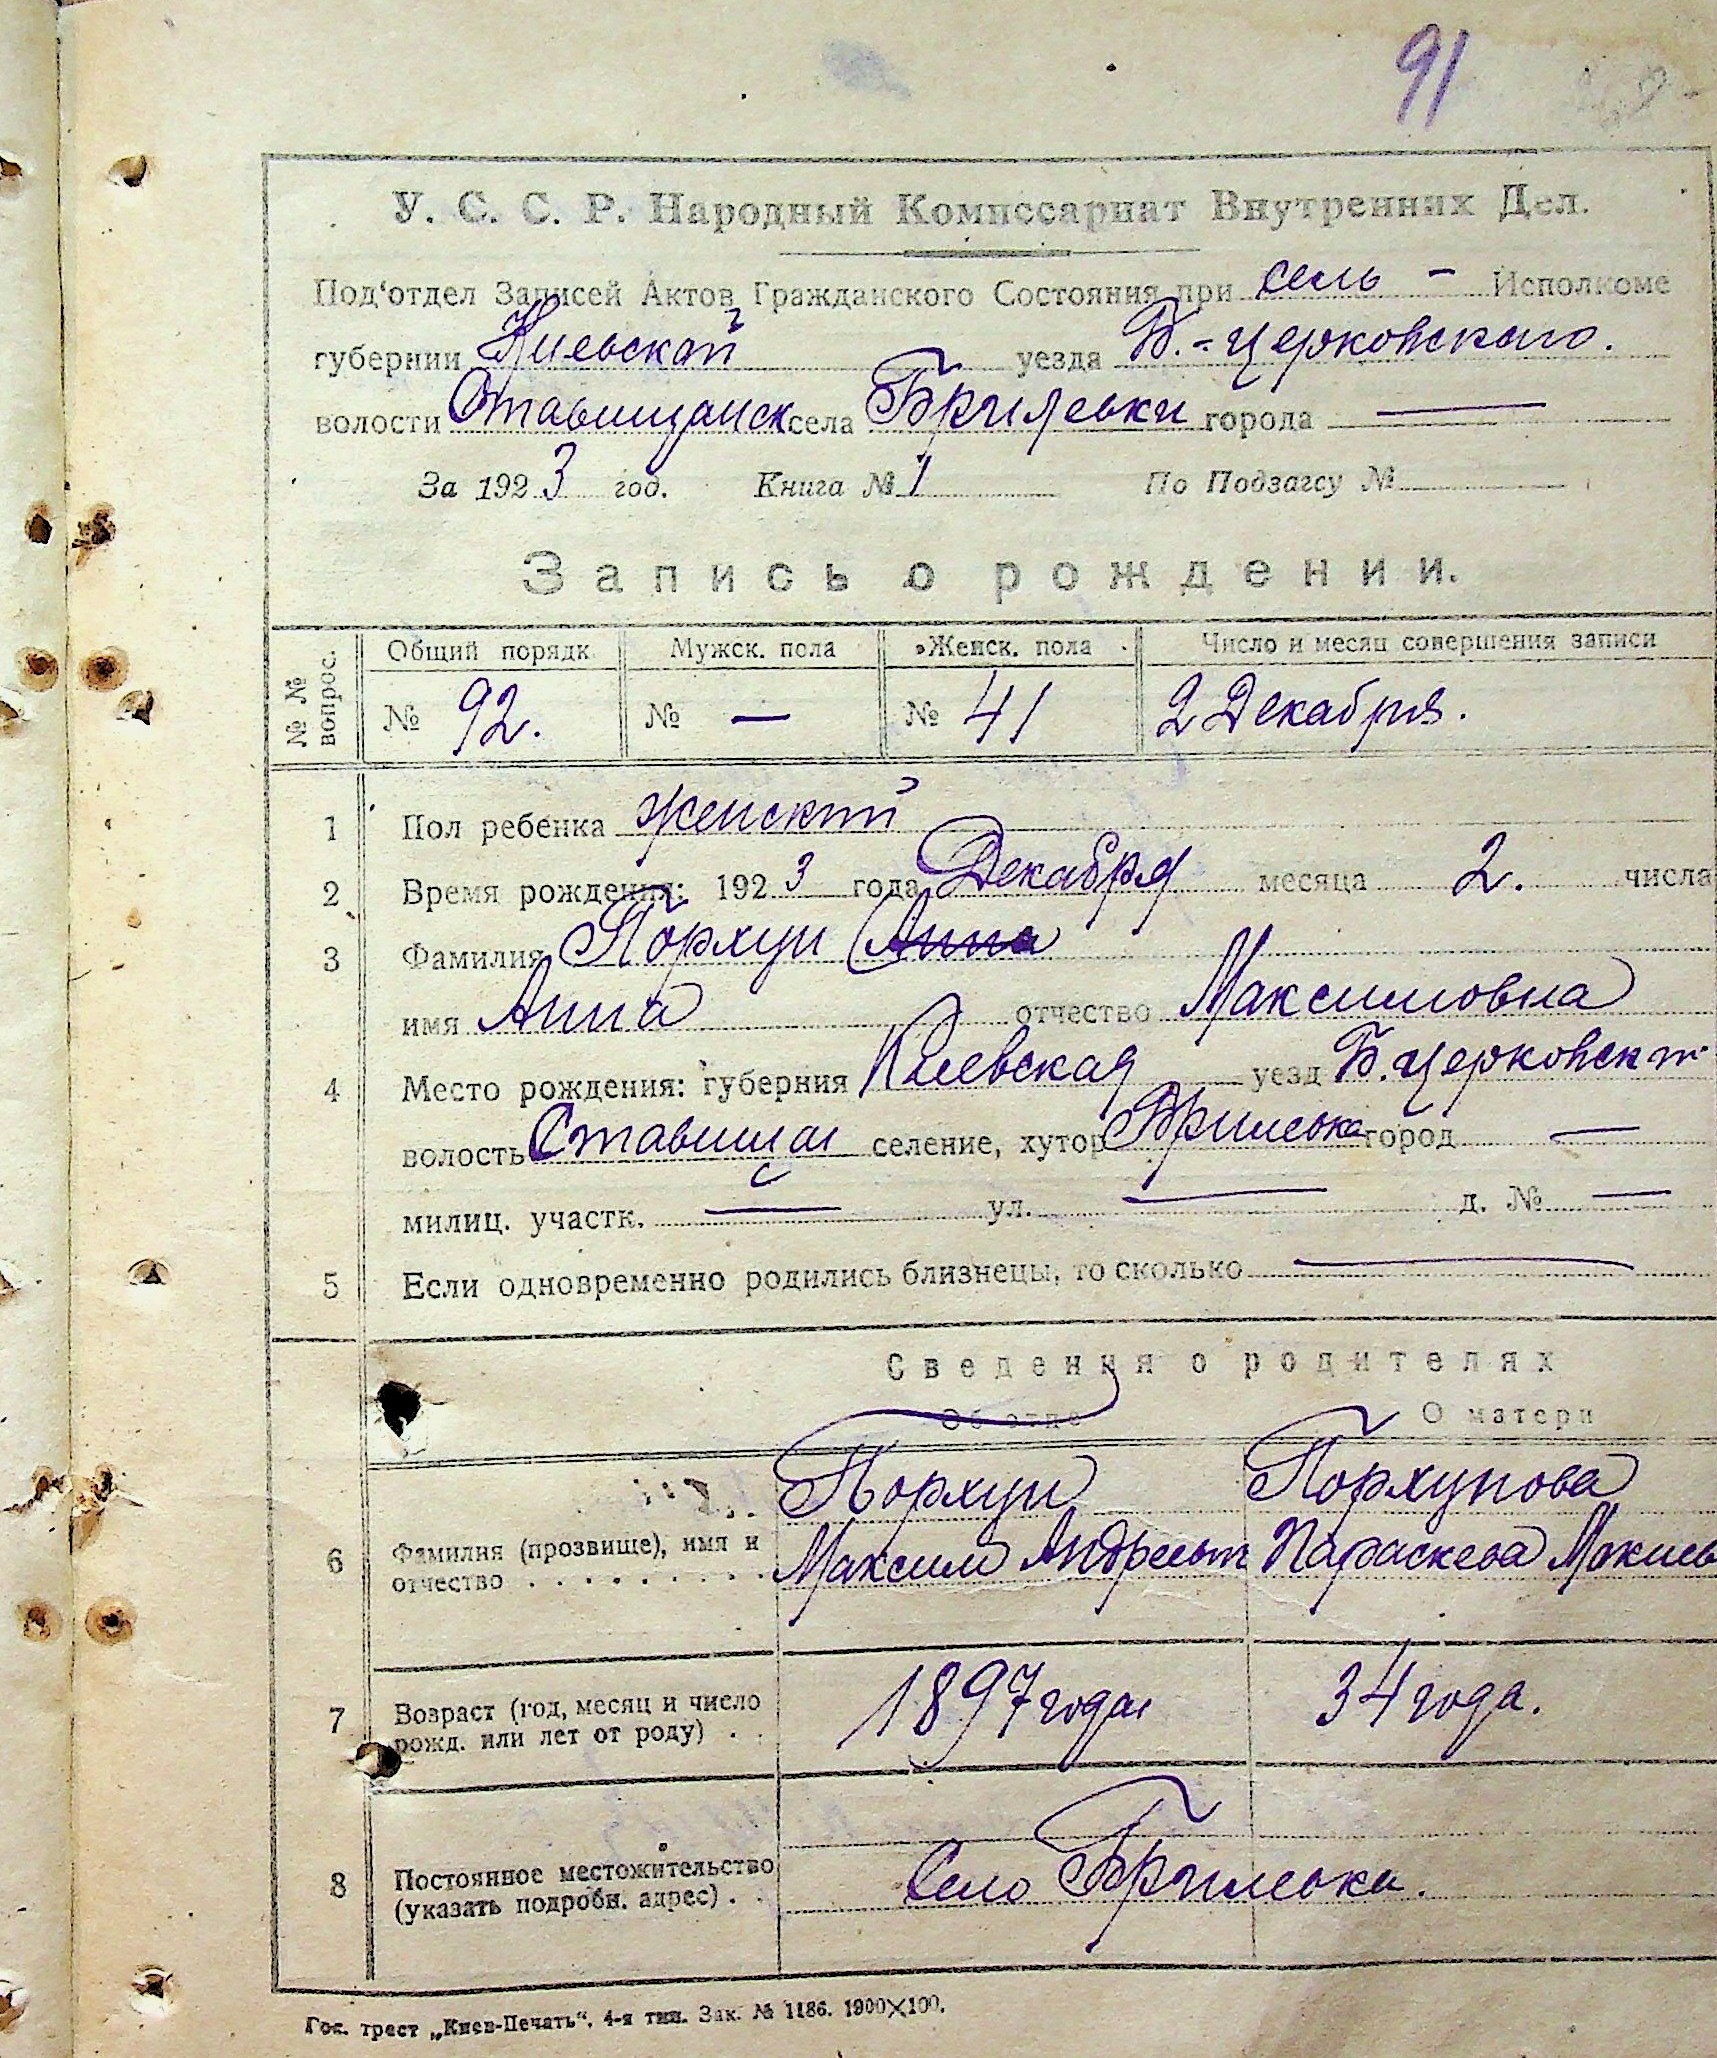 91
У. С. С. Р. Народный Комиссариат Внутренних Дел.
Под‘отдел Записей Актов Гражданского Состояния при сель - Исполкоме
губернии Киевской уезда Б.-Церковского.
волости Ставищанск села Брилевки города —
За 1923 год. Книга № 1 По Подзагсу №
Запись о рождении.
№ № вопрос. Общий порядк. Мужск. пола Женск. пола Число и месяц совершения записи
№ 92. № — № 41 2 Декабря.
1 Пол ребенка женский
2 Время рождения: 1923 года Декабря месяца 2. числа
3 Фамилия Порхун Анна
имя Анна отчество Максимовна
4 Место рождения: губерния Киевская уезд Б. Церковск
волость Ставищи селение, хутор Брилевка город —
милиц. участк. — ул. — д. № —
5 Если одновременно родились близнецы, то сколько —
Сведения о родителях
Об отце О матери
Порхун Порхунова
6 Фамилия (прозвище), имя и Максим Андреев Параскева
отчество . . . . . . . . .
7 Возраст (год, месяц и число 1897 года 34 года.
рожд. или лет от роду) . .
8 Постоянное местожительство Село Брилевка.
(указать подробн. адрес) . .
Гос. трест „Киев-Печать“, 4-я тип. Зак. № 1186. 1900×100.